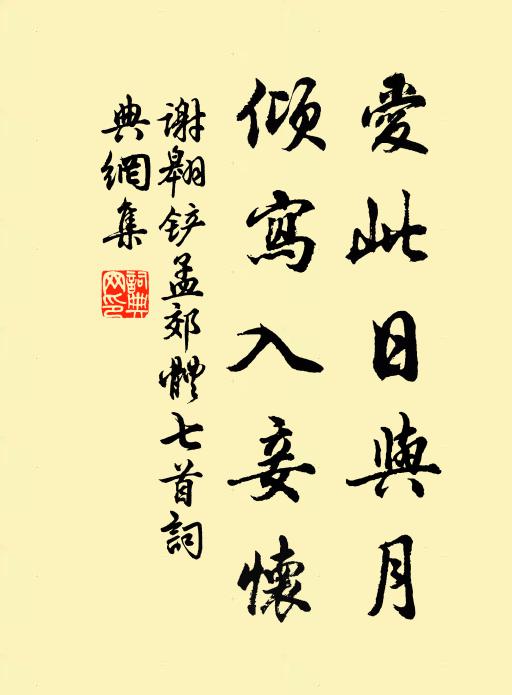 愛此日與月
傾寫入妾懷
謝翱铲孟郊體七首詞
典網集
詞典
网印